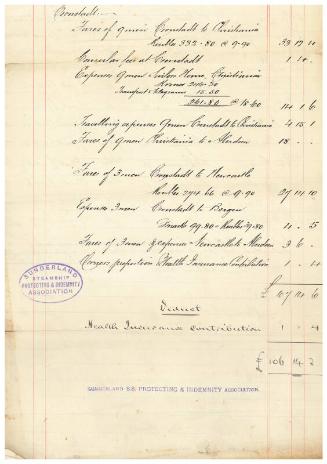 Cronstadt:-
Fares of 9 men Cronstadt to Christiania
Roubles 332-80 @ 9-90 33 12 10
Consular fee at Cronstadt 1 10 -
Expenses 9 men Sailors Home, Christiania
Kroner 246-30
Transport & Telegrams 15.50
261.80 @ 18-60 14 1 6
Travelling expenses 9 men Cronstadt to Christiania 4 15 1
Fares of 9 men Christiania to London 18 - -
Fares of 3 men Cronstadt to Newcastle
Roubles 274.66 @ 9-90 27 14 10
Expenses 3 men Cronstadt to Bergen
4 - 5
Fares of 3 men & expenses - Newcastle to London 3 6 -
Owners proportion Health Insurance Contribution 1 - 4
£ 107 14 6
Deduct
Health Insurance Contribution 1 - 4
£ 106 14 2
SUNDERLAND
STEAMSHIP
PROTECTING & INDEMNITY
ASSOCIATION
SUNDERLAND S.S. PROTECTING & INDEMNITY ASSOCIATION.